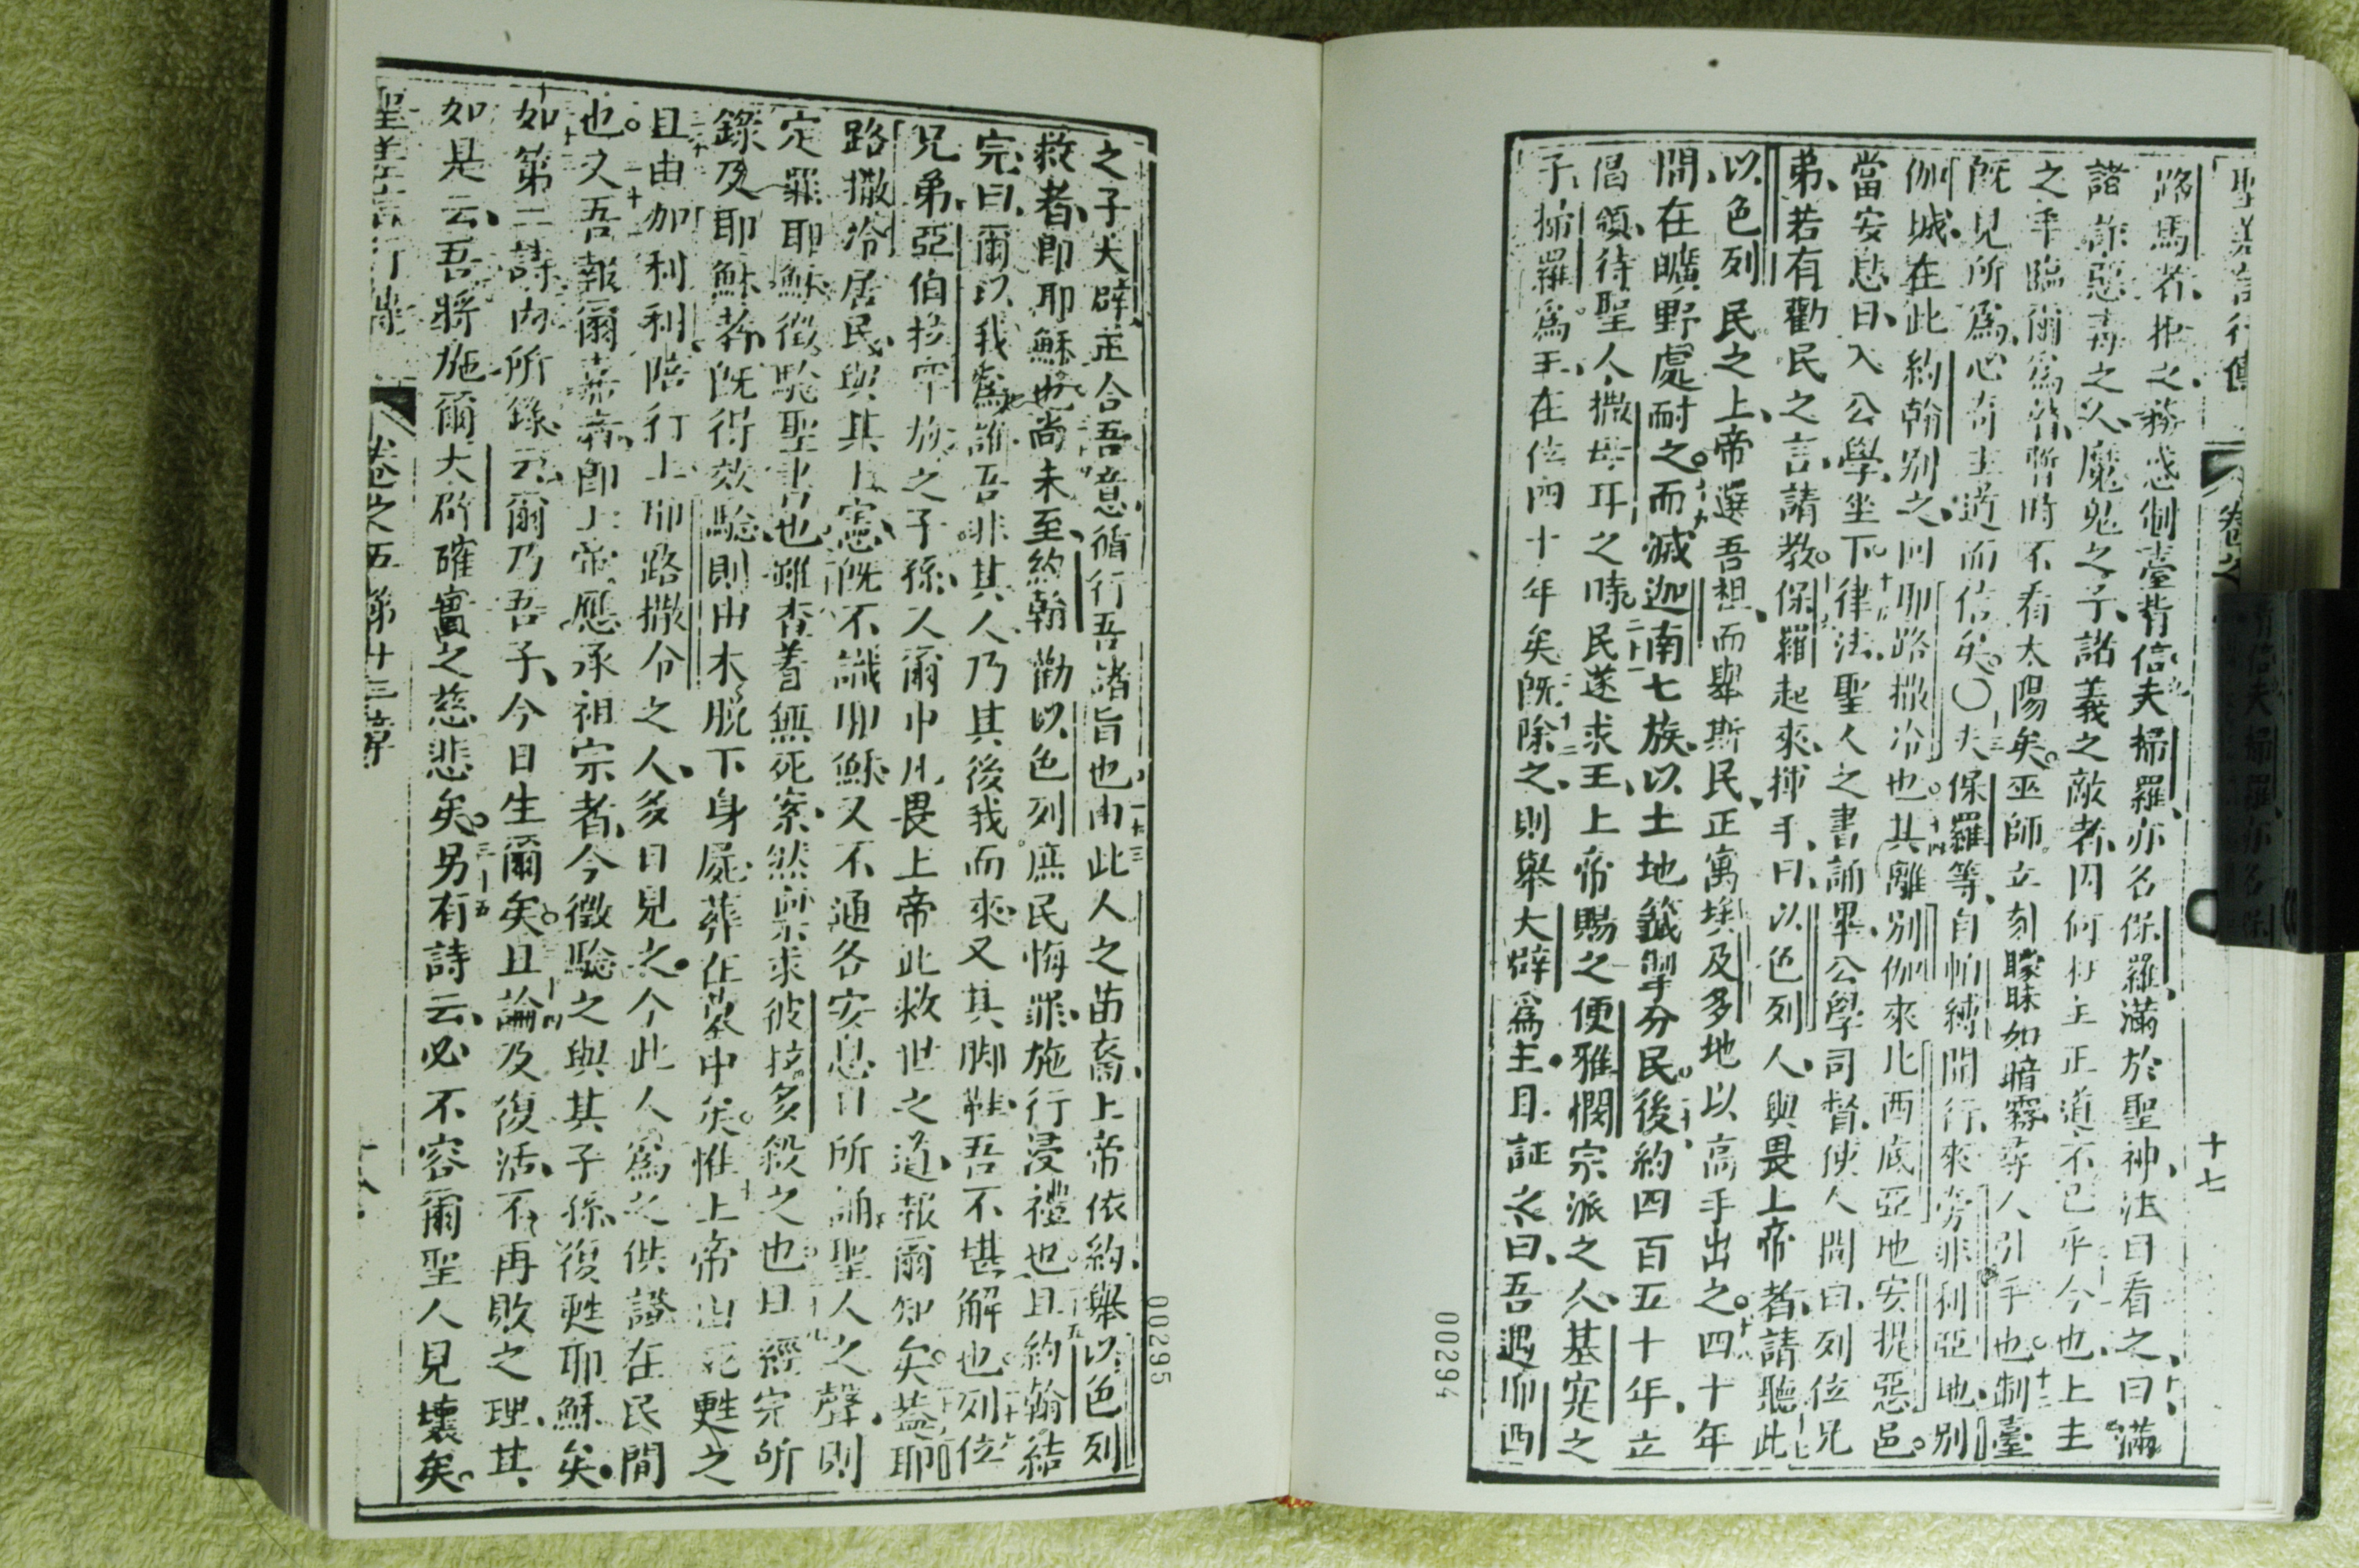 聖差言行傳
卷之
十七
路馬者拒之務惑制臺背信夫掃羅亦名保羅滿於聖神注目看之曰滿
諸詐惡毒之人魔鬼之子諸義之敵者因何枉主正道不已乎今也上主
之手臨爾為瞽暫時不看太陽矣巫師立刻矇昧如暗霧尋人引手也制臺
既見所為心奇主道而信矣〇夫保羅等自帕縛開行來旁非利亞地別
伽城在此約翰別之回耶路撒冷也其離別伽來比西底亞地安提惡邑
當安息日入公學坐下律法聖人之書誦畢公學司督使人問曰列位兄
弟若有勸民之言請教保羅起來揮手曰以色列人與畏上帝者請聽此
以色列民之上帝選吾祖而舉斯民正寓埃及多地以高手出之四十年
間在曠野處耐之而滅迦南七族以土地籤掣分民後約四百五十年立
倡領待聖人撒母耳之時民遂求王上帝賜之便雅憫宗派之人基寀之
子掃羅為王在位四十年矣既除之則舉大辟為主且証之曰吾遇耶西
00294
之子大辟主合吾意循行吾諸旨也由此人之苗裔上帝依約舉以色列
救者即耶穌也尚未至約翰勸以色列庶民悔罪施行浸禮也且約翰結
完曰爾以我為誰吾非其人乃其後我而來又其脚鞋吾不堪解也列位
兄弟亞伯拉罕族之子孫又爾中凡畏上帝此救世之道報爾知矣蓋耶
路撒冷居民與其上憲既不識耶穌又不通各安息日所誦聖人之聲則
定罪耶穌徵驗聖書也雖查著無死案然尚求彼拉多殺之也曰經完所
錄及耶穌教既得效驗則由木脱下身屍葬在墓中矣惟上帝由死甦之
且由加利利陪行上耶路撒冷之人多日見之今此人為之供證在民間
也又吾報爾嘉音即上帝應承祖宗者今徵驗之與其子孫復甦耶穌矣
如第二詩內所錄云爾乃吾子今日生爾矣且論及復活不再敗之理其
如是云吾將施爾大辟確實之慈悲矣另有詩云必不容爾聖人見壞矣
聖差言行傳
卷之五第十三章
十八
00295